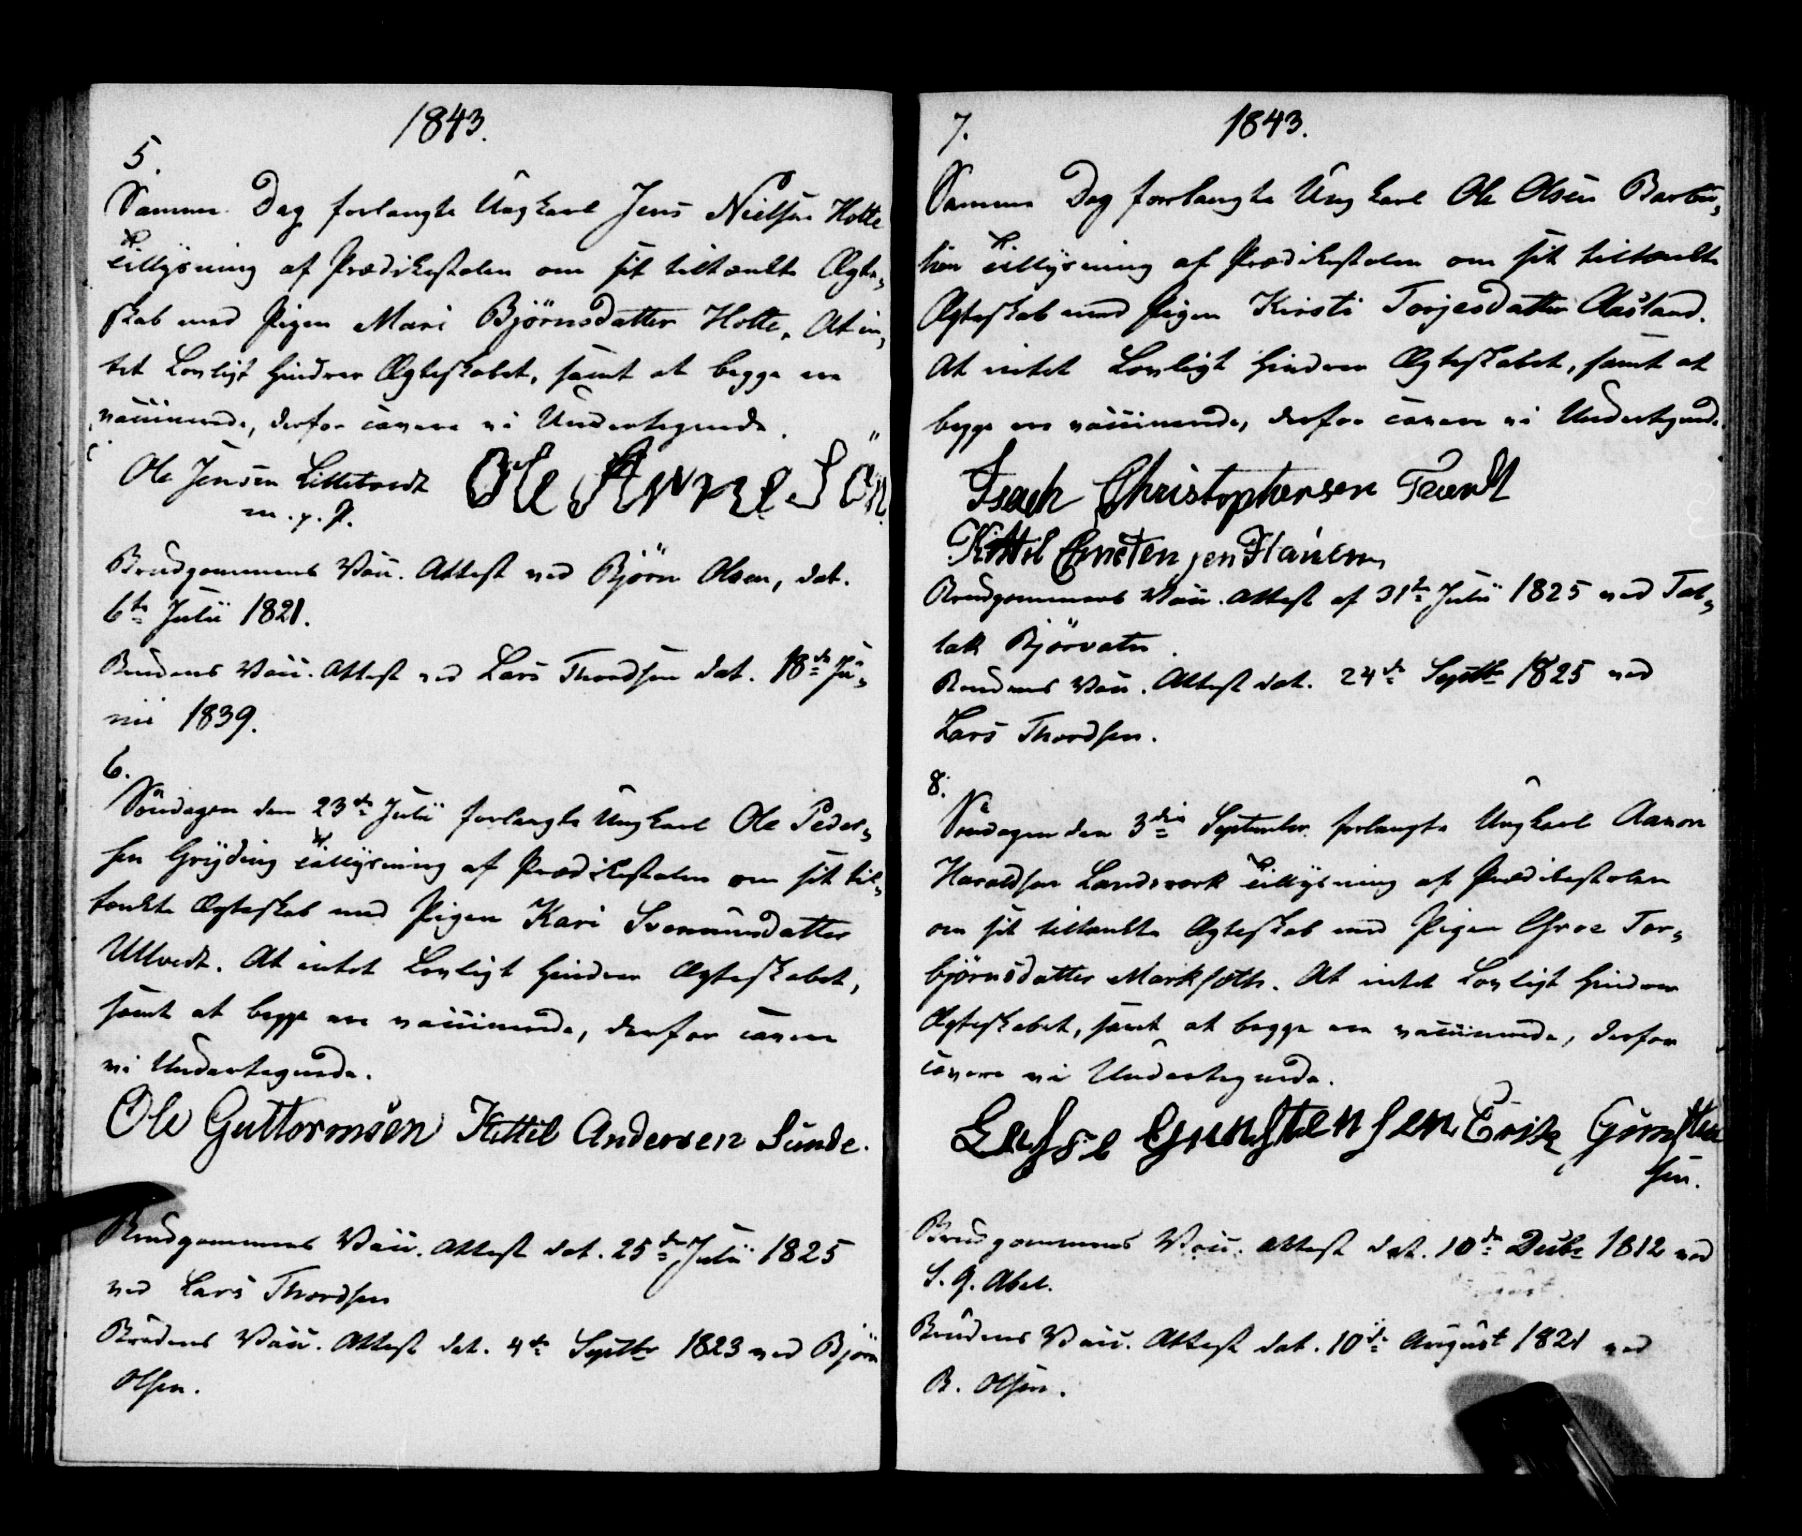 1843.
5.
Samme Dag forlangte Ungkarl Jens Nielsen Holte
Tillysning af Prædikestolen om sit tiltænkte Ægte„
skab med Pigen Mari Björnsdatter Holte. At in„
tet Lovligt hindrer Ægteskabet, samt at begge ere
vaccinerede, derfor cavere vi Undertegnede.
Ole Jensen Lilletvedt Ole Arnne Sön
m. p. P.
Brudgommens Vacc. Attest ved Björn Olsen, dat.
6te Julii 1821.
Brudens Vacc. Attest ved Lars Thordsen dat. 18de Ju„
nii 1839.
6.
Söndagen den 23de Julii forlangte Ungkarl Ole Peder„
sen Gryding Tillysning af Prædikestolen om sit til„
tænkte Ægteskab med Pigen Kari Svenunsdatter
Ulltvedt. At intet Lovligt hindrer Ægteskabet,
samt at begge ere vaccinerede, derfor cavere
vi Undertegnede.
Ole Guttormsen Kittil Andersen Sunde.
Brudgommens Vacc. Attest dat. 25de Julii 1825
ved Lars Thordsen
Brudens Vacc. Attest dat. 4de Septbr 1823 ved Björn
Olsen.
1843.
7.
Samme Dag forlangte Ungkarl Ole Olsen Barbu„
Tillysning af Prædikestolen om sit tiltænkte
Ægteskab med Pigen Kirsti Torjesdatter Aasland.
At intet Lovligt hindrer Ægteskabet, samt at
begge ere vaccinerede, derfor cavere vi Undertegnede.
Isach Christophersen
Kittil
Brudgommens Vacc. Attest af 31te Julii 1825 ved Tal„
lak Björvatn.
Brudens Vacc. Attest dat. 24de Septbr 1825 ved
Lars Thordsen.
8.
Söndagen den 3die September forlangte Ungkarl Aanon
Haraldsen Landsverk Tillysning af Prædikestolen
om sit tiltænkte Ægteskab med Pigen Groe Tor„
björnsdatter. At intet Lovligt hindrer
Ægteskabet, samt at begge ere vaccinerede, derfor
cavere vi Undertegnede.
Gunstensen Erik Gunsten
sen.
Brudgommens Vacc. Attest dat. 10de Decbr 1812 ved
S. G. Abel.
Brudens Vacc. Attest dat. 10de August 1821 ved
B. Olsen.